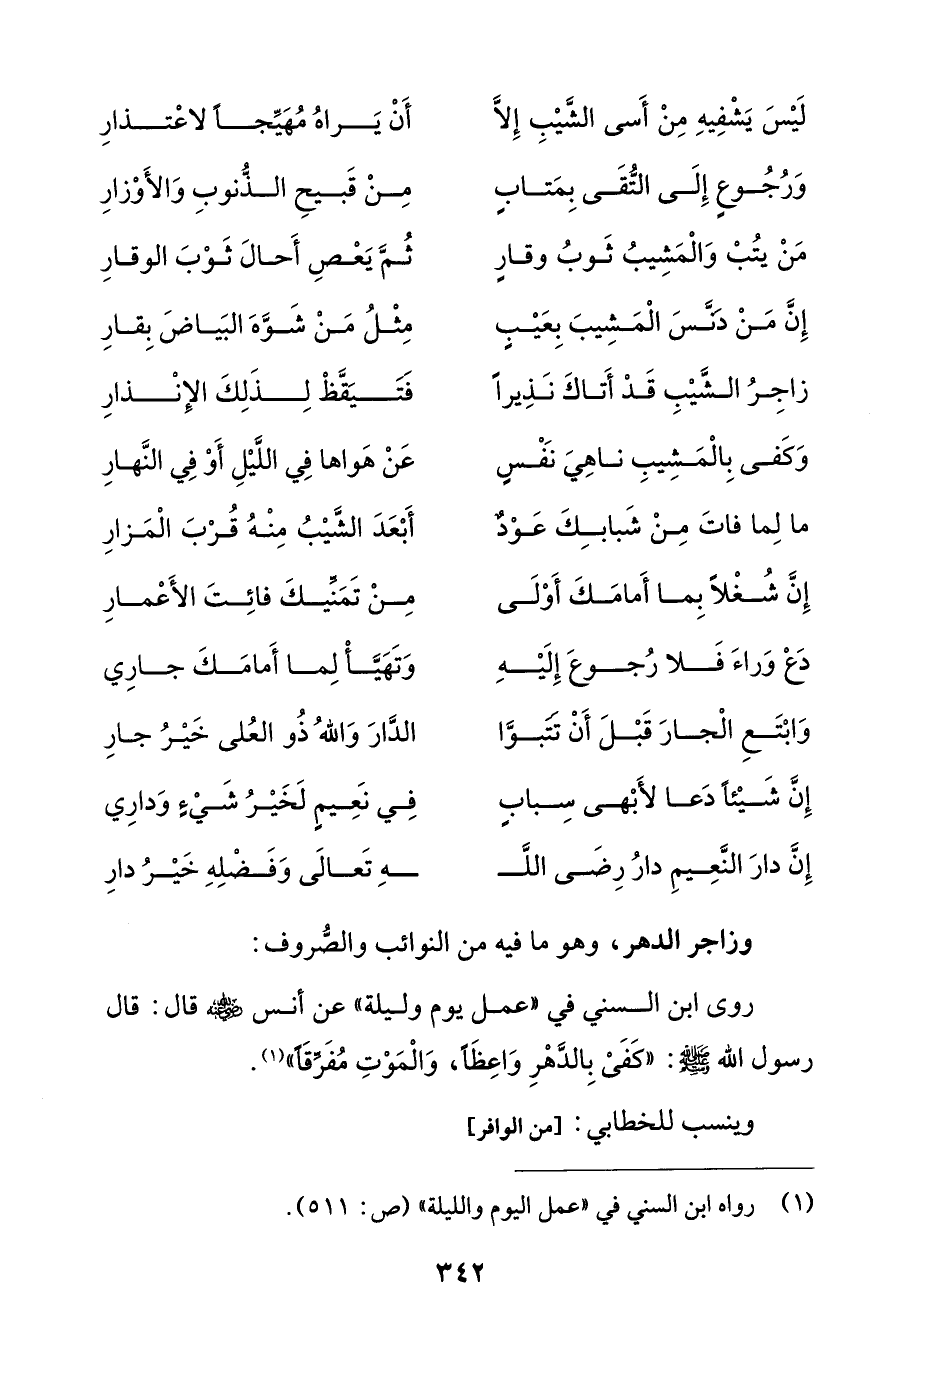 لَيْسَ يَشْفِيهِ مِنْ أَسى الشَّيْبِ إِلاَّ أَنْ يَـرَاهُ مُهَيِّجـاً لاعْتـذارِ
وَرُجُـوعٍ إِلَـى التُّقَـى بِمَتـابٍ مِـنْ قَبِـيحِ الـذُّنوبِ وَالأَوْزارِ
مَنْ يتُبْ وَالْمَشِيبُ ثَـوبُ وقـارٍ ثُـمَّ يَعْـصِ أَحـالَ ثَـوْبَ الوقـارِ
إِنَّ مَـنْ دَنَّـسَ الْمَـشِيبَ بِعَيْـبٍ مِثْـلُ مَـنْ شَـوَّهَ البَيـاضَ بِقـارِ
زاجِـرُ الـشَّيْبِ قَـدْ أَتـاكَ نَـذِيراً فَتَـيَقَّظْ لِـذَلِكَ الإِنْـذارِ
وَكَفَـى بِالْمَـشِيبِ نـاهِيَ نَفْـسٍ عَنْ هَواها فِي اللَّيْلِ أَوْ فِي النَّهـارِ
ما لِما فاتَ مِـنْ شَبابِـكَ عَـوْدٌ أَبْعَدَ الشَّيْبُ مِنْـهُ قُـرْبَ الْمَـزارِ
إِنَّ شُـغْلاً بِمـا أَمامَـكَ أَوْلَـى مِـنْ تَمَنِّيـكَ فائِـتَ الأَعْمـارِ
دَعْ وَراءَ فَـلا رُجـوعَ إِلَيْـهِ وَتَهَيَّـأْ لِمـا أَمامَـكَ جـارِي
وَابْتَـعِ الْجـارَ قَبْـلَ أَنْ تَتَبـوَّا الدَّارَ وَاللهُ ذُو العُلى خَيْـرُ جـارِ
إِنَّ شَـيْئاً دَعـا لأَبْهـى سِـبابٍ فِـي نَعِيـمٍ لَخَيْـرُ شَـيْءٍ وَدارِي
إِنَّ دارَ النَّعِـيمِ دارُ رِضَـى اللَّـ ـهِ تَعـالَى وَفَـضْلِهِ خَيْـرُ دارِ
وزاجر الدهر، وهو ما فيه من النوائب والصُّروف:
روى ابن الـسني في «عمـل يوم وليلة» عن أنـس رضي الله عنه قال: قال
رسول الله ﷺ: «كَفَىْ بِالدَّهْرِ وَاعِظَاً، وَالْمَوْتِ مُفَرِّقَاً»(١).
وينسب للخطابي: [من الوافر]
(١) رواه ابن السني في «عمل اليوم والليلة» (ص: ٥١١).
٣٤٢